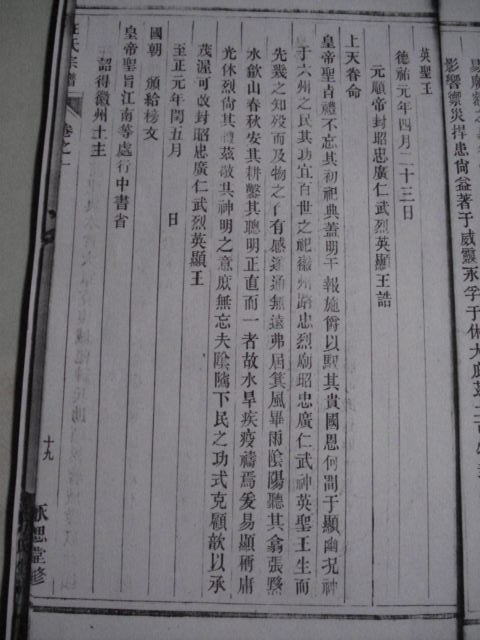 影響禦災捍患尚益著于威靈永孚于休大
英聖王
德祐元年四月二十三日
元順帝封昭忠廣仁武烈英顯王誥
上天眷命
皇帝聖旨禮不忘其初祀典蓋明于報施爵以馭其貴國恩何間于顯幽況神
于六州之民其功宜百世之祀徽州路忠烈廟昭忠廣仁武神英聖王生而
先幾之知歿而及物之仁有感遂通無遠弗屆箕風畢雨陰陽聽其翕張黟
水歙山春秋安其耕鑿其聰明正直而一者故水旱疾疫禱焉爰易顯碩庸
光休烈尚其體茲敬其神明之意庶無忘夫陰隲下民之功式克顧歆以承
茂渥可改封昭忠廣仁武烈英顯王
至正元年閏五月　日
國朝　頒給榜文
皇帝聖旨江南等處行中書省
詔得徽州土主
氏宗譜
卷之一
十九
永思堂修